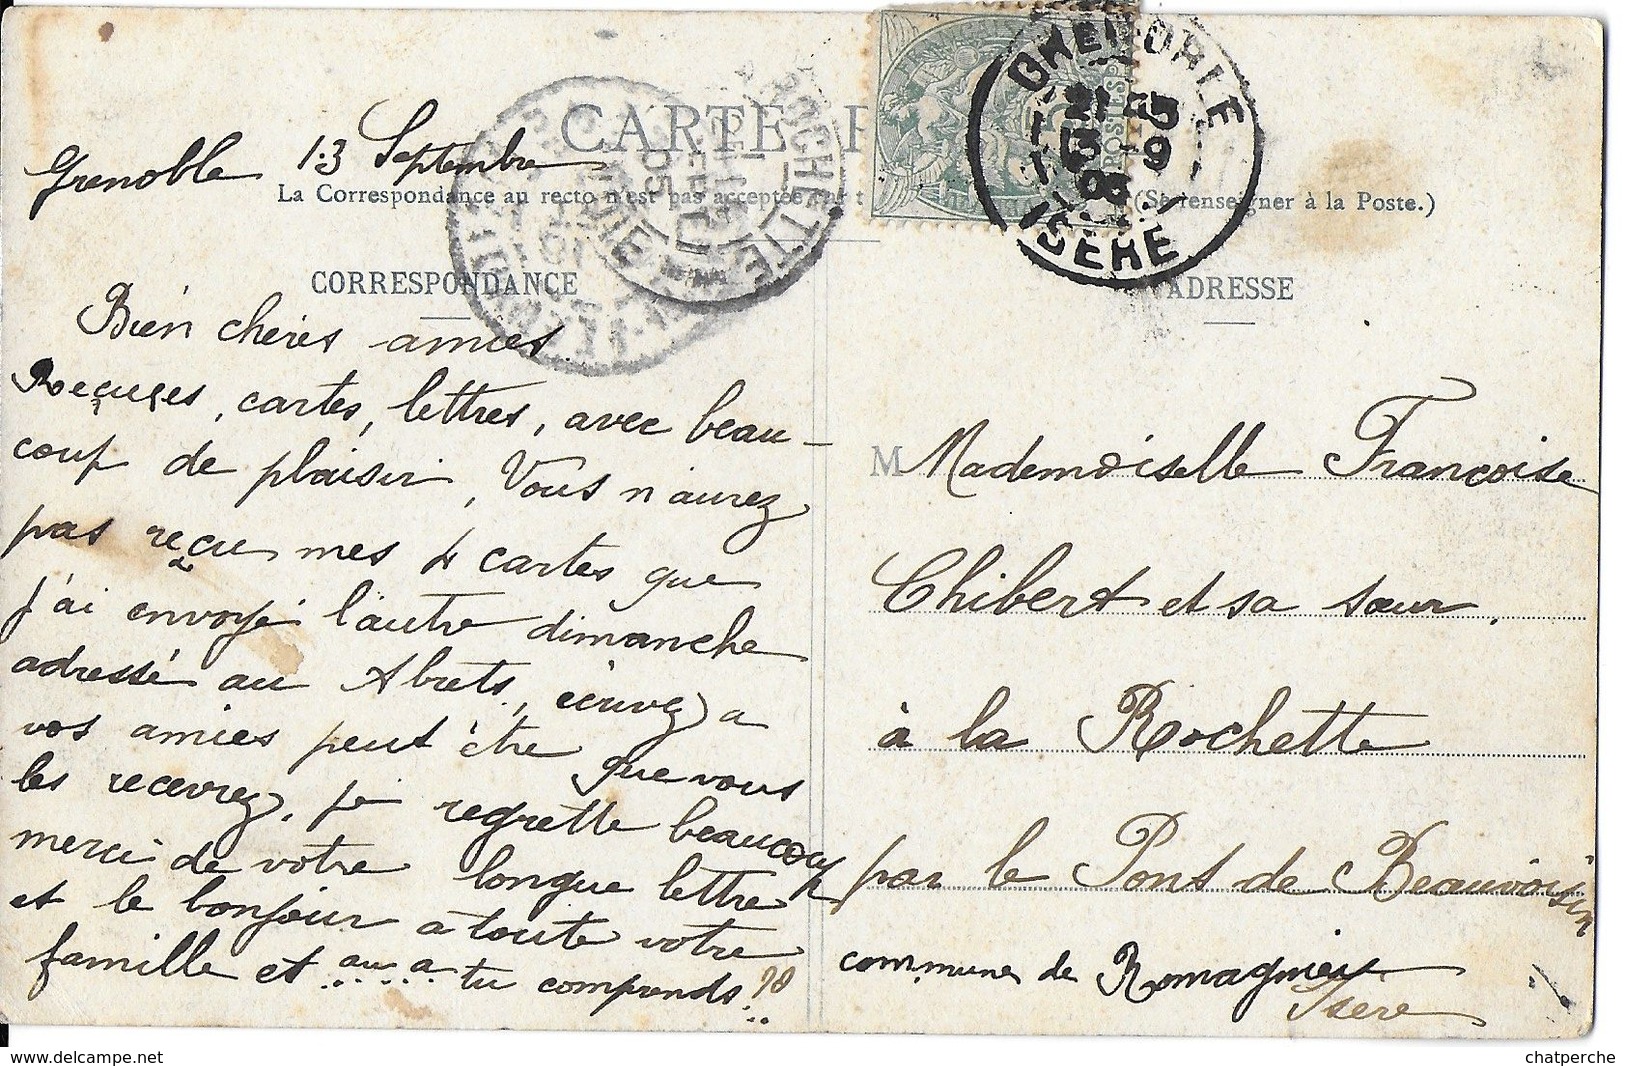 CARTE P
Grenoble 13 Septembre
La Corrrespondance au recto n'est pas acceptée par t
(Se renseigner à la Poste.)
GRENOBLE
ISERE
ROCHETTE
POSTES
CORRESPONDANCE
Bien chères amies
Reçues, cartes, lettres, avec beau-
coup de plaisir, Vous n'aurez
pas reçu mes 4 cartes que
j'ai envoyé l'autre dimanche
adressé au Abrets, écrivez a
vos amies peut être que vous
les recevrez, je regrette beaucoup
merci de votre longue lettre
et le bonjour à toute votre
famille et au a tu comprends !?
ADRESSE
M Mademoiselle Francoise
Chibert et sa sœur,
à la Rochette
par le Pont de Beauvoisin
commune de Romagnieu
Isère
chatperche